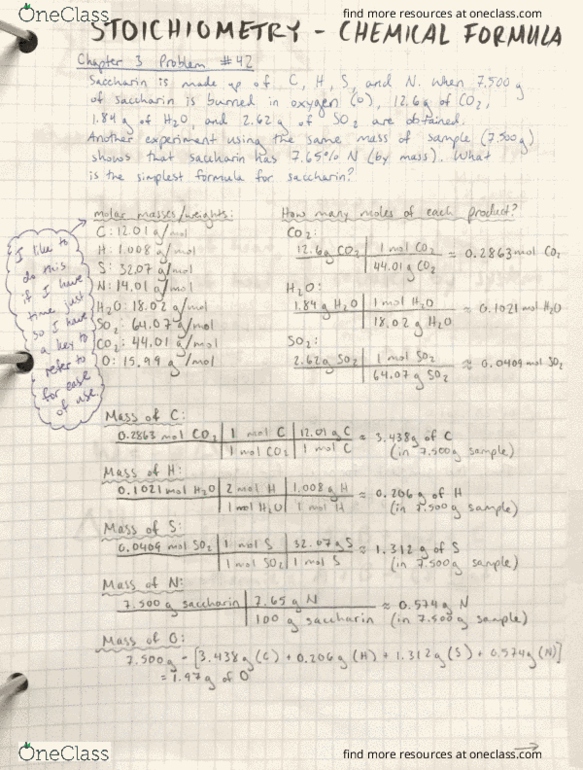 OneClass
find more resources at oneclass.com
STOICHIOMETRY - CHEMICAL FORMULA
Chapter 3 Problem #42
Saccharin is made up of C, H, S, and N. When 7.500 g
of saccharin is burned in oxygen (O), 12.6g of CO2,
1.84 g of H2O, and 2.62 g of SO2 are obtained.
Another experiment using the same mass of sample (7.500g)
shows that saccharin has 7.65% N (by mass). What
is the simplest formula for saccharin?
molar masses/weights:
C: 12.01 g/mol
H: 1.008 g/mol
S: 32.07 g/mol
N: 14.01 g/mol
H2O: 18.02 g/mol
SO2: 64.07 g/mol
CO2: 44.01 g/mol
O: 15.99 g/mol
I like to
do this
if I have
time just
so I have
a key to
refer to
for ease
of use.
How many moles of each product?
CO2:
12.6g CO2 | 1 mol CO2 ≈ 0.2863 mol CO2
44.01 g CO2
H2O:
1.84 g H2O | 1 mol H2O ≈ 0.1021 mol H2O
18.02 g H2O
SO2:
2.62g SO2 | 1 mol SO2 ≈ 0.0409 mol SO2
64.07 g SO2
Mass of C:
0.2863 mol CO2 | 1 mol C | 12.01 g C ≈ 3.438g of C
1 mol CO2 | 1 mol C (in 7.500g sample)
Mass of H:
0.1021 mol H2O | 2 mol H | 1.008 g H ≈ 0.206 g of H
1 mol H2O | 1 mol H (in 7.500g sample)
Mass of S:
0.0409 mol SO2 | 1 mol S | 32.07g S ≈ 1.312 g of S
1 mol SO2 | 1 mol S (in 7.500g sample)
Mass of N:
7.500 g saccharin | 7.65 g N ≈ 0.574 g N
100 g saccharin (in 7.500g sample)
Mass of O:
7.500g - [3.438g (C) + 0.206g (H) + 1.312g (S) + 0.574g (N)]
= 1.97g of O
OneClass
find more resources at oneclass.com